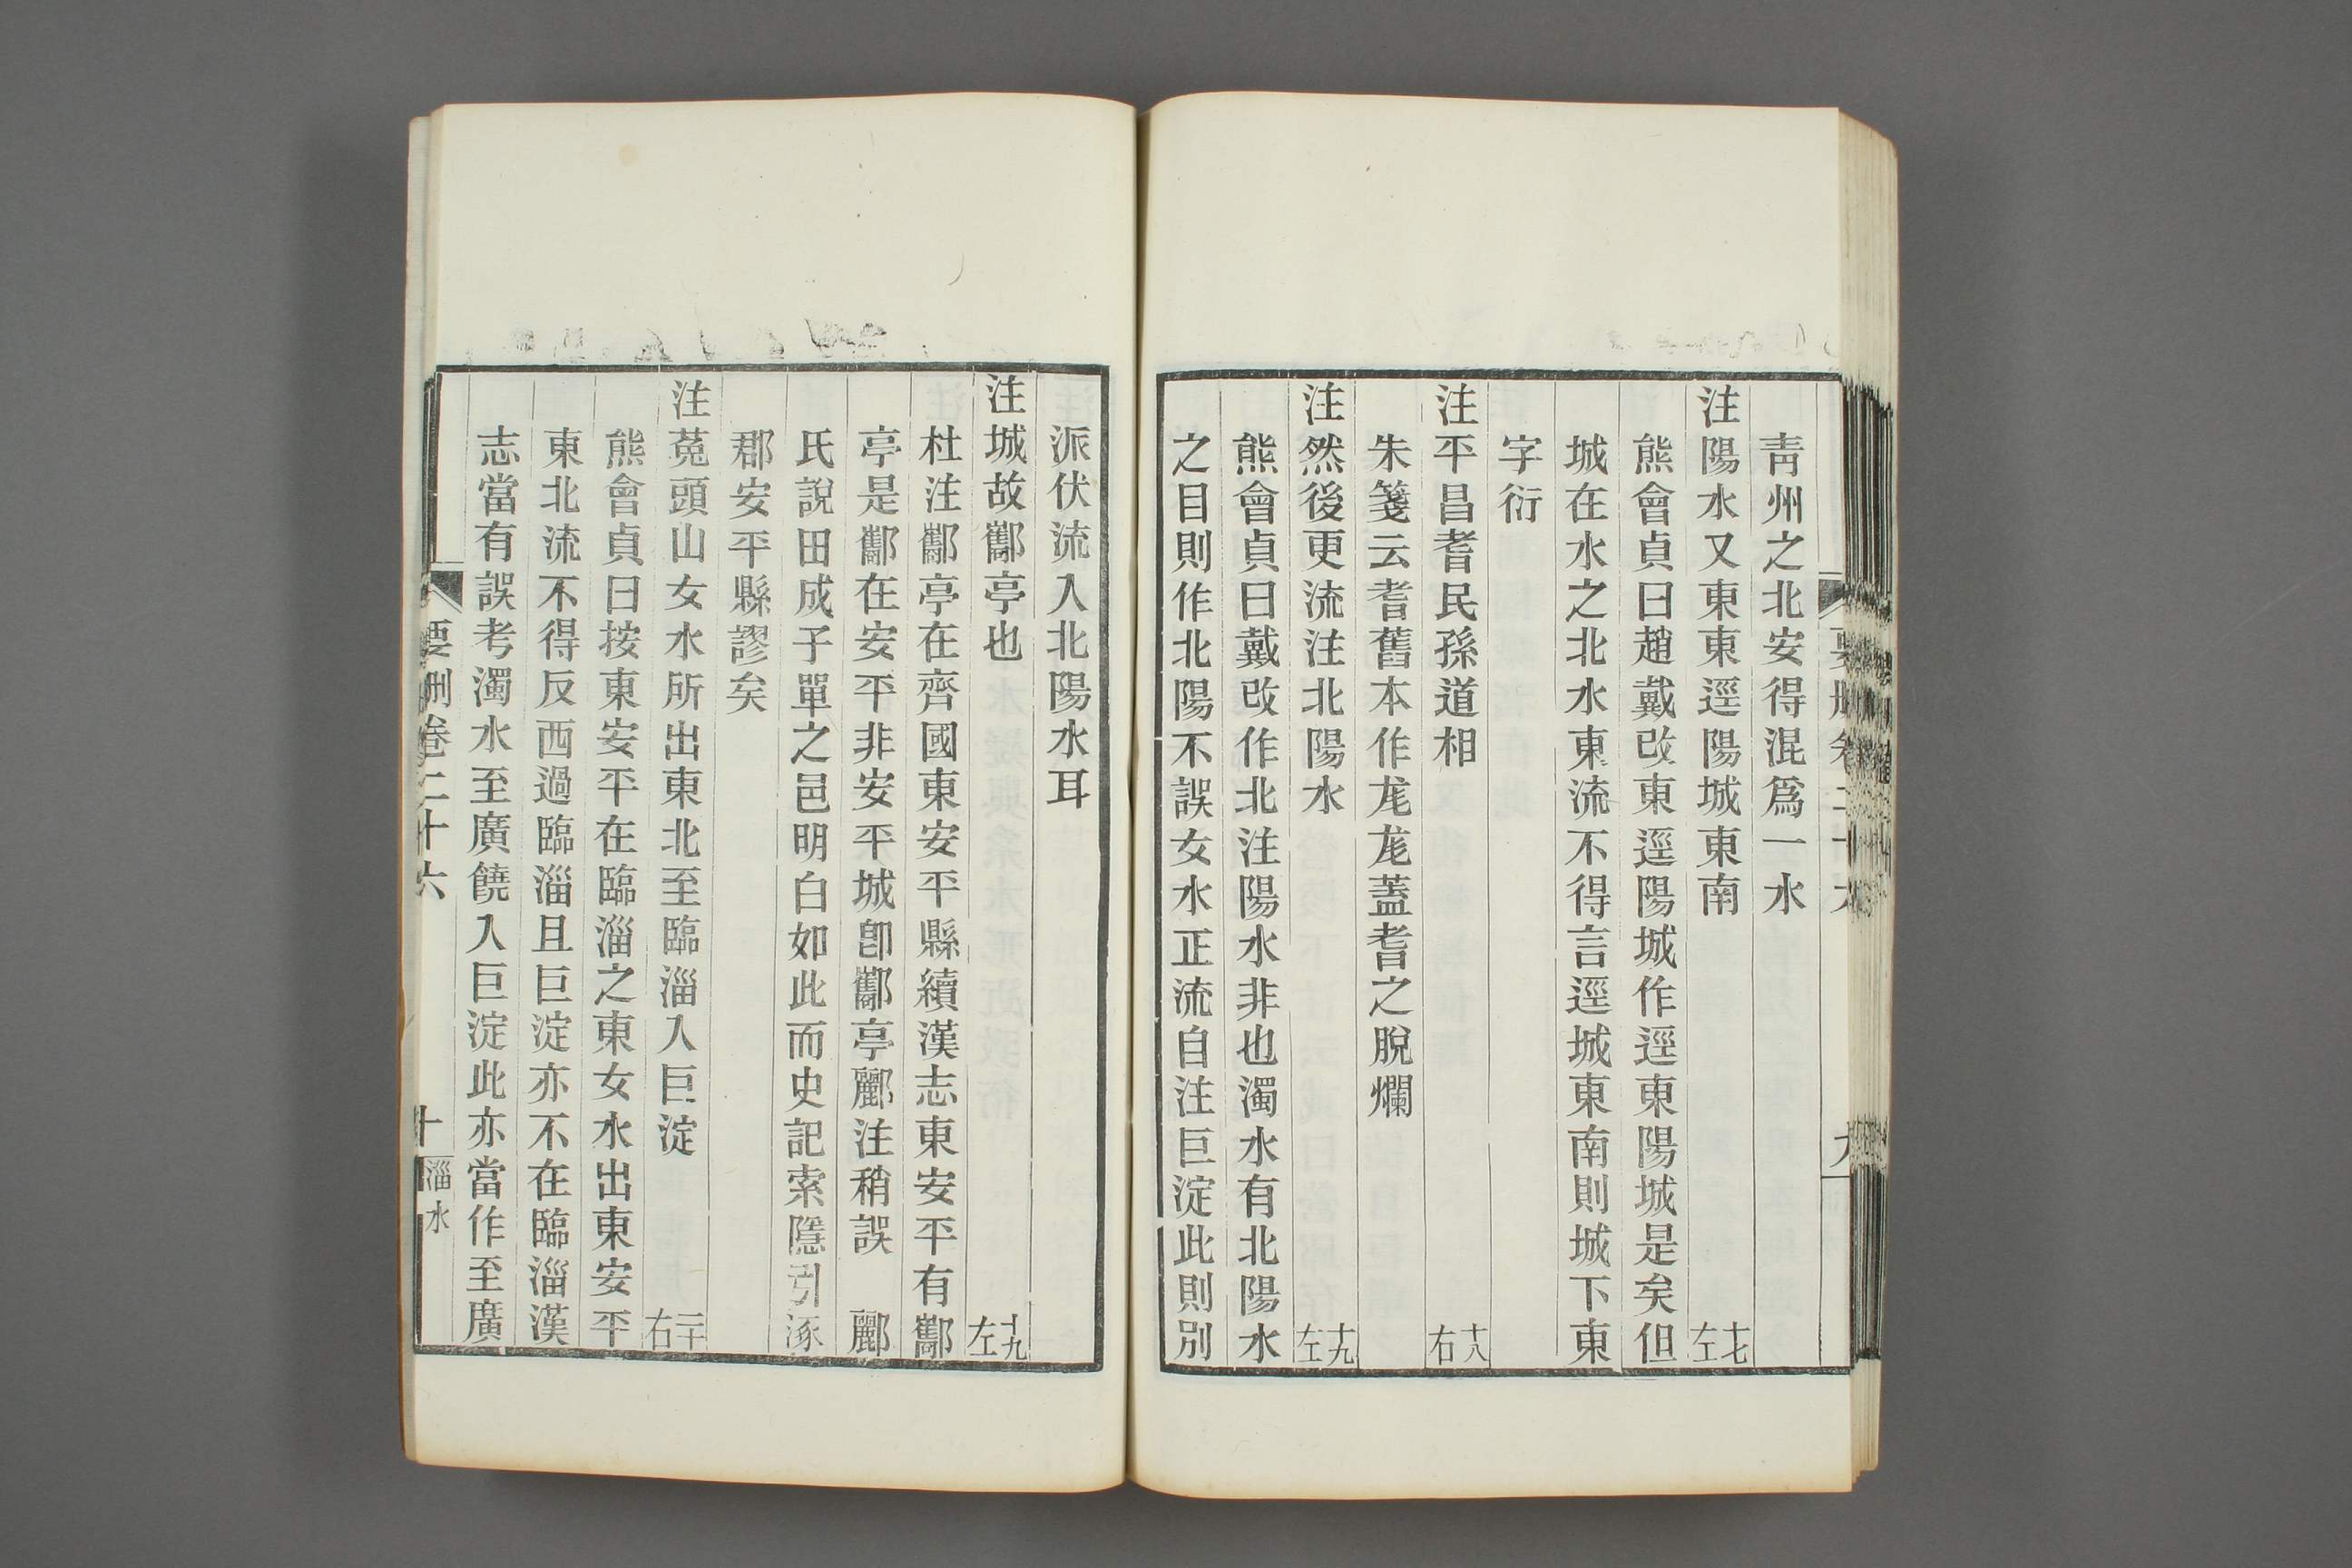 靑州之北安得混爲一水
注陽水又東東逕陽城東南 十七左
熊會貞曰趙戴改東逕陽城作逕東陽城是矣但
城在水之北水東流不得言逕城東南則城下東
字衍
注平昌耆民孫道相 十八右
朱箋云耆舊本作龙龙蓋耆之脫爛
注然後更流注北陽水 十九左
熊會貞曰戴改作北注陽水非也濁水有北陽水
之目則作北陽不誤女水正流自注巨淀此則別
派伏流入北陽水耳
注城故酅亭也 十九左
杜注酅亭在齊國東安平縣續漢志東安平有酅
亭是酅在安平非安平城卽酅亭酈注稍誤 酈
氏說田成子單之邑明白如此而史記索隱引涿
郡安平縣謬矣
注菟頭山女水所出東北至臨淄入巨淀 二十右
熊會貞曰按東安平在臨淄之東女水出東安平
東北流不得反西過臨淄且巨淀亦不在臨淄漢
志當有誤考濁水至廣饒入巨淀此亦當作至廣
要刪卷二十六 十 淄水